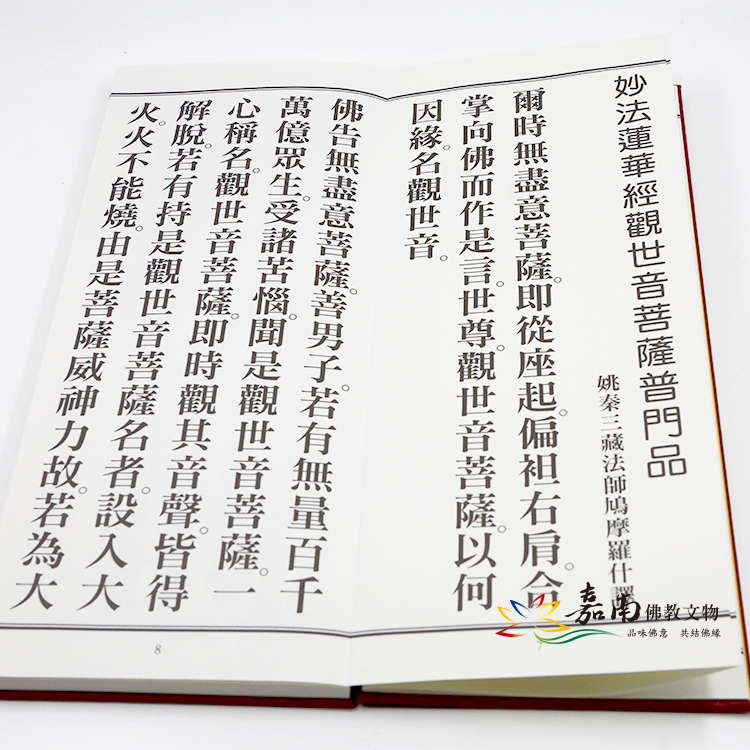 妙法蓮華經觀世音菩薩普門品
姚秦三藏法師鳩摩羅什譯
爾時無盡意菩薩。即從座起。偏袒右肩。合
掌向佛而作是言。世尊。觀世音菩薩。以何
因緣。名觀世音。
佛告無盡意菩薩。善男子。若有無量百千
萬億眾生。受諸苦惱。聞是觀世音菩薩。一
心稱名。觀世音菩薩。即時觀其音聲。皆得
解脫。若有持是觀世音菩薩名者。設入大
火。火不能燒。由是菩薩威神力故。若為大
8
嘉南佛教文物
品味佛意 共結佛緣